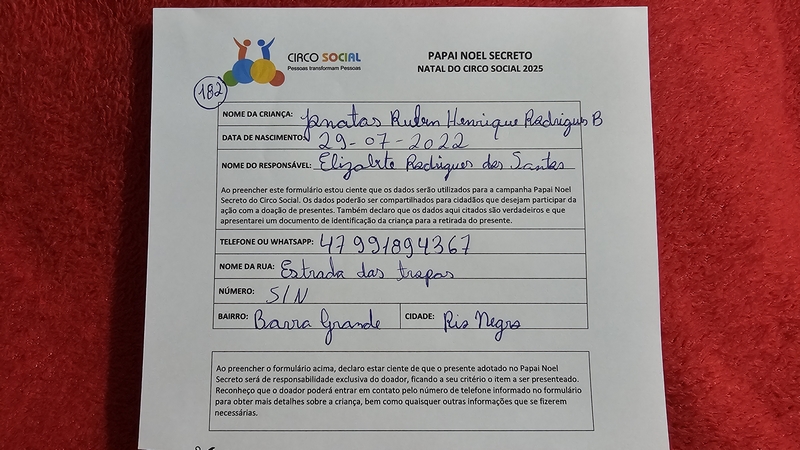 CIRCO SOCIAL
Pessoas transformam Pessoas
PAPAI NOEL SECRETO
NATAL DO CIRCO SOCIAL 2025
182
NOME DA CRIANÇA: Jonatas Ruben Henrique Rodrigues B
DATA DE NASCIMENTO: 29-07-2022
NOME DO RESPONSÁVEL: Elizabete Rodrigues dos Santos
Ao preencher este formulário estou ciente que os dados serão utilizados para a campanha Papai Noel
Secreto do Circo Social. Os dados poderão ser compartilhados para cidadãos que desejam participar da
ação com a doação de presentes. Também declaro que os dados aqui citados são verdadeiros e que
apresentarei um documento de identificação da criança para a retirada do presente.
TELEFONE OU WHATSAPP: 47 991894367
NOME DA RUA: Estrada das tropas
NÚMERO: S/N
BAIRRO: Barra Grande CIDADE: Rio Negro
Ao preencher o formulário acima, declaro estar ciente de que o presente adotado no Papai Noel
Secreto será de responsabilidade exclusiva do doador, ficando a seu critério o item a ser presenteado.
Reconheço que o doador poderá entrar em contato pelo número de telefone informado no formulário
para obter mais detalhes sobre a criança, bem como quaisquer outras informações que se fizerem
necessárias.